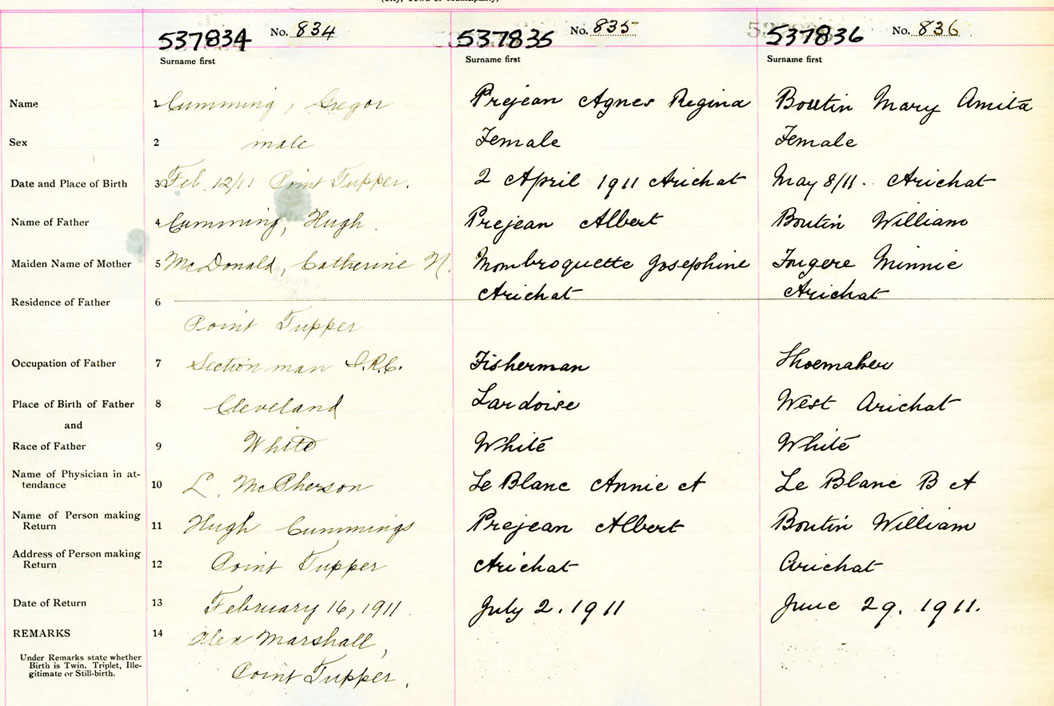 (City, Town or Municipality)
537834 No. 834 537835 No. 835 537836 No. 836
Surname first Surname first Surname first
Name 1 Cumming, Gregor Prejean Agnes Regina Boutin Mary Amita
Sex 2 male Female Female
Date and Place of Birth 3 Feb. 12/11 Point Tupper. 2 April 1911 Arichat May 8/11. Arichat
Name of Father 4 Cumming, Hugh. Prejean Albert Boutin William
Maiden Name of Mother 5 McDonald, Catherine N. Mombroquette Josephine Fougere Minnie
Residence of Father 6 Arichat Arichat
Point Tupper
Occupation of Father 7 Section man I.R.C. Fisherman Shoemaker
Place of Birth of Father 8 Cleveland Lardoise West Arichat
and
Race of Father 9 White White White
Name of Physician in at-
tendance 10 L. McPherson Le Blanc Annie A Le Blanc B A
Name of Person making
Return 11 Hugh Cummings Prejean Albert Boutin William
Address of Person making
Return 12 Point Tupper Arichat Arichat
Date of Return 13 February 16, 1911. July 2. 1911 June 29. 1911.
REMARKS 14 Alex Marshall,
Under Remarks state whether
Birth is Twin, Triplet, Ille-
gitimate or Still-birth.
Point Tupper.